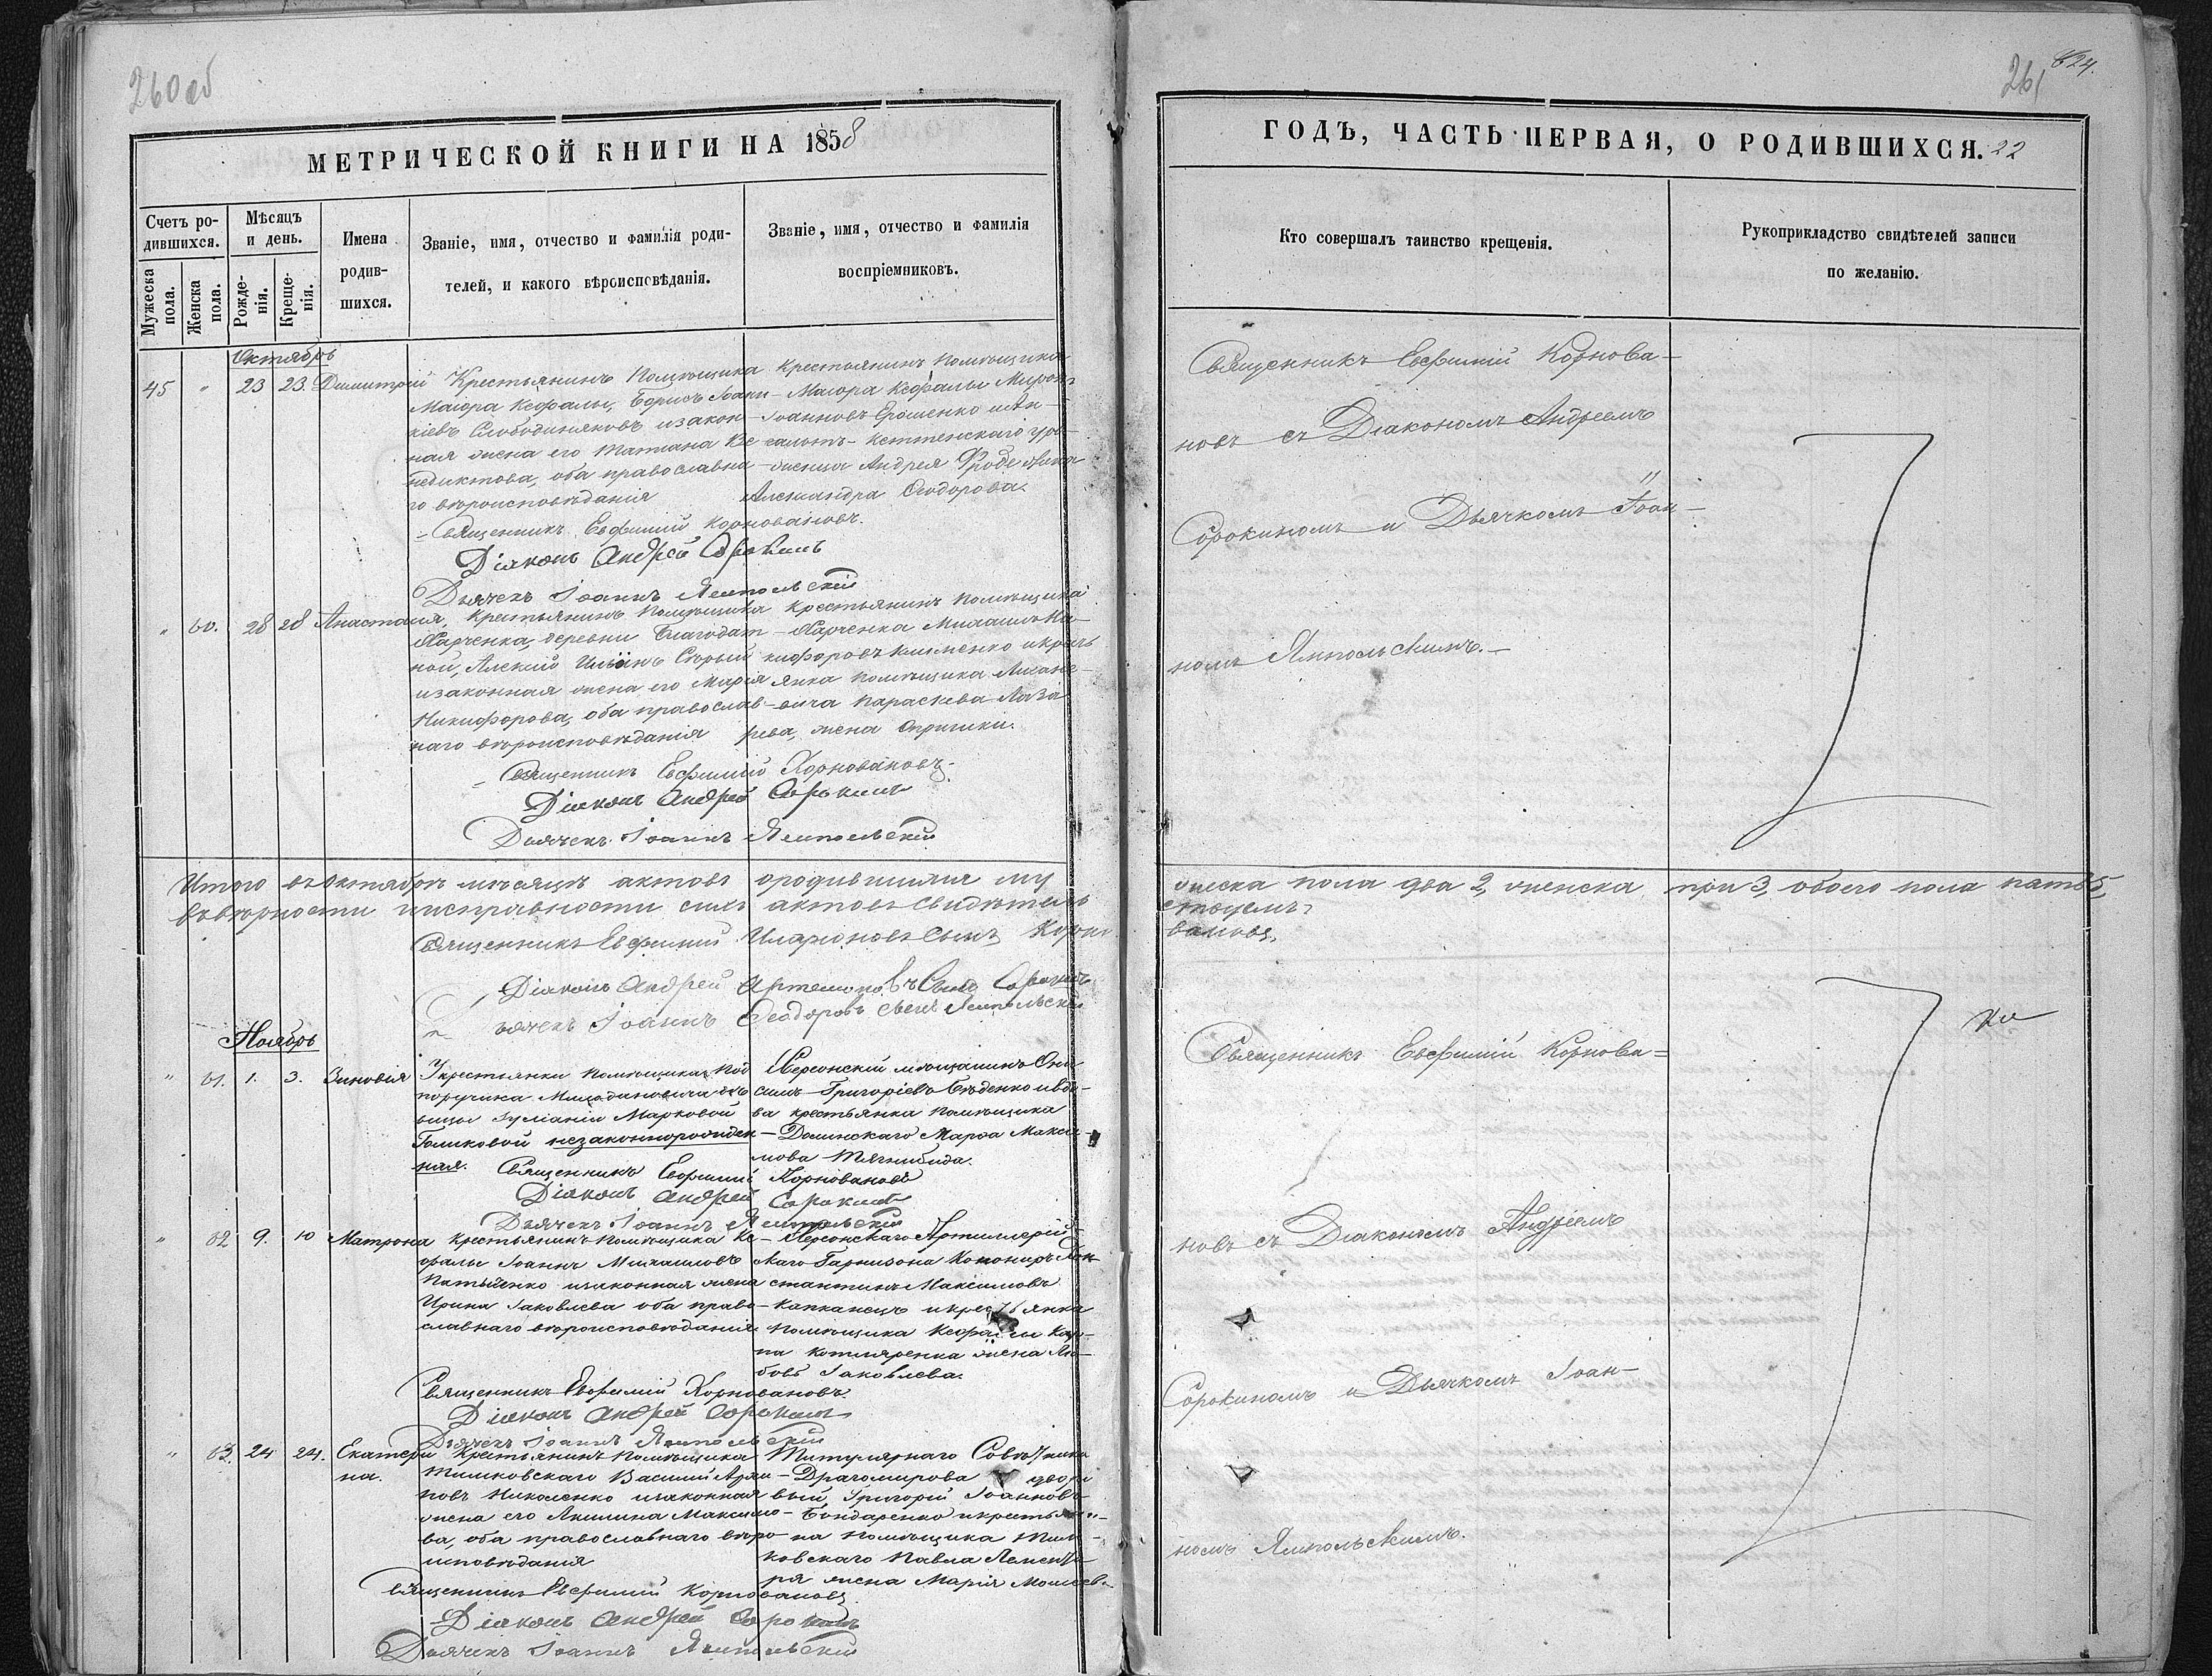 260 об
МЕТРИЧЕСКОЙ КНИГИ НА 1858
Счетъ ро-
дившихся.
Мѣсяцъ
и день.
Мужеска
пола.
Женска
пола.
Рожде-
нія.
Креще-
нія.
Имена
родив-
шихся.
Званіе, имя, отчество и фамилія роди-
телей, и какого вѣроисповѣданія.
Званіе, имя, отчество и фамилія
воспріемниковъ.
Октябрь
45 " 23 23. Димитрій
Крестьянинъ Помѣщика
Маіора Кефалы, Борисъ Іоан-
кіевъ Слободиняковъ и закон-
ная жена его Татіана Ве-
недиктова, оба православна-
го вѣроисповѣданія
Крестьянинъ Помѣщика
Маіора Кефалы Миронъ
Іоанновъ Ерошенко и
женца Андрея
Александра Ѳеодорова.
Священникъ Евфимій Корновановъ.
Діаконъ Андрей Сорокинъ
Дьячекъ Іоаннъ Ямпольскій
" 60. 28 28 Анастасія,
Крестьянинъ Помѣщика
Харченка, деревни Благодат-
ной, Алексій Ильинъ Сѣрый
и законная жена его Марія
Никифорова, оба православ-
наго вѣроисповѣданія
Крестьянинъ Помѣщика
Харченка Михаилъ Ни-
кифоровъ Клименко и кресть
янка помѣщика
вича Параскева Лаза
рева, жена Опришки.
Священникъ Евфимій Корновановъ.
Діаконъ Андрей Сорокинъ
Дьячекъ Іоаннъ Ямпольскій
Итого въ октябрѣ мѣсяцѣ актовъ о родившихся му
въ вѣрности и исправности сихъ актовъ свидѣтель
Священникъ Евфимій Иларіоновъ Сынъ Корно
Діаконъ Андрей Артемоновъ Сынъ Сорокинъ
Дьячекъ Іоаннъ Ѳеодоровъ сынъ Ямпольскій
Ноябрь
" 61. 1. 3. Зиновія
У крестьянки помѣщика Под
поручика Милодановича дѣ
вицы Іуліаніи Марковой
Голиковой незаконнорожден-
ная.
Херсонскій мѣщанинъ Они
симъ Григоріевъ Бѣденко и вдо-
ва крестьянка помѣщика
Долинскаго Марѳа Макси-
мова Тягнибида.
Священникъ Евфимій Корновановъ
Діаконъ Андрей Сорокинъ
Дьячекъ Іоаннъ Ямпольскій
" 62 9. 10 Матрона
Крестьянинъ Помѣщика Ке-
фалы Іоаннъ Михаиловъ
и законная жена
Ирина Іаковлева оба право-
славнаго вѣроисповѣданія
Херсонскаго Артиллерій-
скаго Гарнизона Канониръ Кон
стантинъ Максимовъ
и крестьянка
помѣщика Кефалы Кар-
па Котляренка жена Лю-
бовь Іаковлева.
Священникъ Евфимій Корновановъ
Діаконъ Андрей Сорокинъ
Дьячекъ Іоаннъ Ямпольскій
" 63. 24 24. Екатери
на.
Крестьянинъ Помѣщика
Тимковскаго Василій
новъ Николенко и законная
жена его Акилина Максимо-
ва, оба православнаго вѣро-
исповѣданія
Титулярнаго Совѣтника
Драгомирова дворо
вый Григорій Іоанновъ
Бондаренко и крестьяни-
на помѣщика Тим-
ковскаго Павла
ря жена Марія Моисеева
Священникъ Евфимій Корновановъ
Діаконъ Андрей Сорокинъ
Дьячекъ Іоаннъ Ямпольскій
261
824.
ГОДЪ, ЧАСТЬ ПЕРВАЯ, О РОДИВШИХСЯ. 22
Кто совершалъ таинство крещенія.
Рукоприкладство свидѣтелей записи
по желанію.
Священникъ Евфимій Корнова-
новъ съ Діакономъ Андреемъ
Сорокиномъ и Дьячкомъ Іоан-
номъ Ямпольскимъ.
жеска пола два 2, женска три 3, обоего пола пять 5
ствуемъ:
вановъ,
Священникъ Евфимій Корнова-
новъ съ Діакономъ Андреемъ
Сорокиномъ и Дьячкомъ Іоан-
номъ Ямпольскимъ.